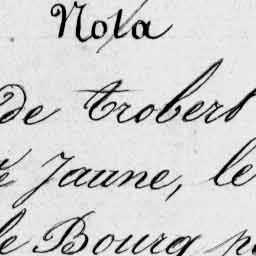 Nota
de Trobert
Jaune, le
le Bourg